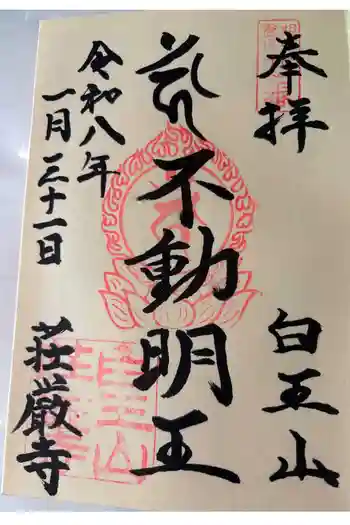 奉拝
白王山
不動明王
令和八年
一月三十一日
荘厳寺